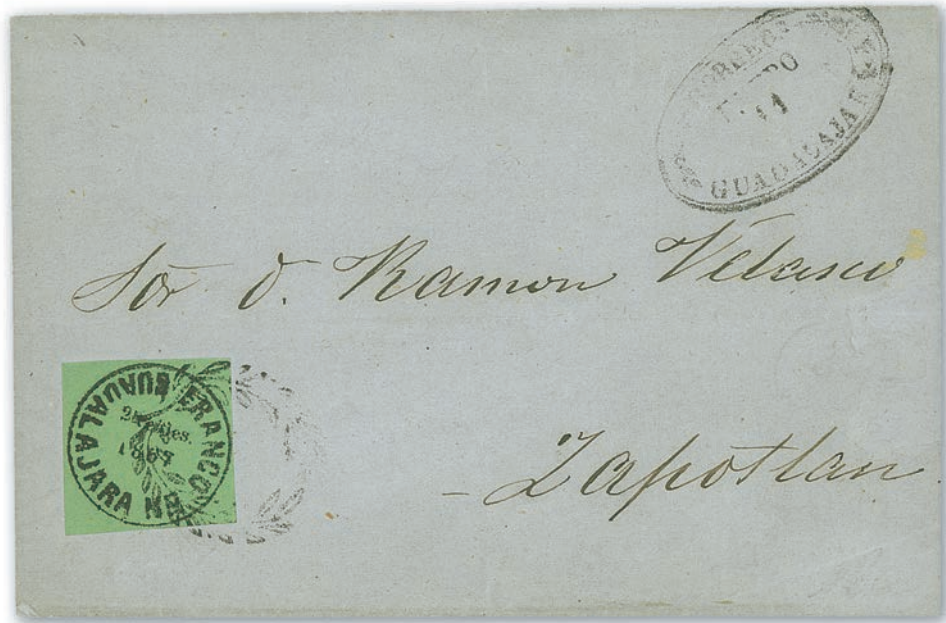 CORREOS
11
GUADALAJARA
Sor d. Ramon Velasco
FRANCO EN
GUADALAJARA
2 reales.
- Zapotlan